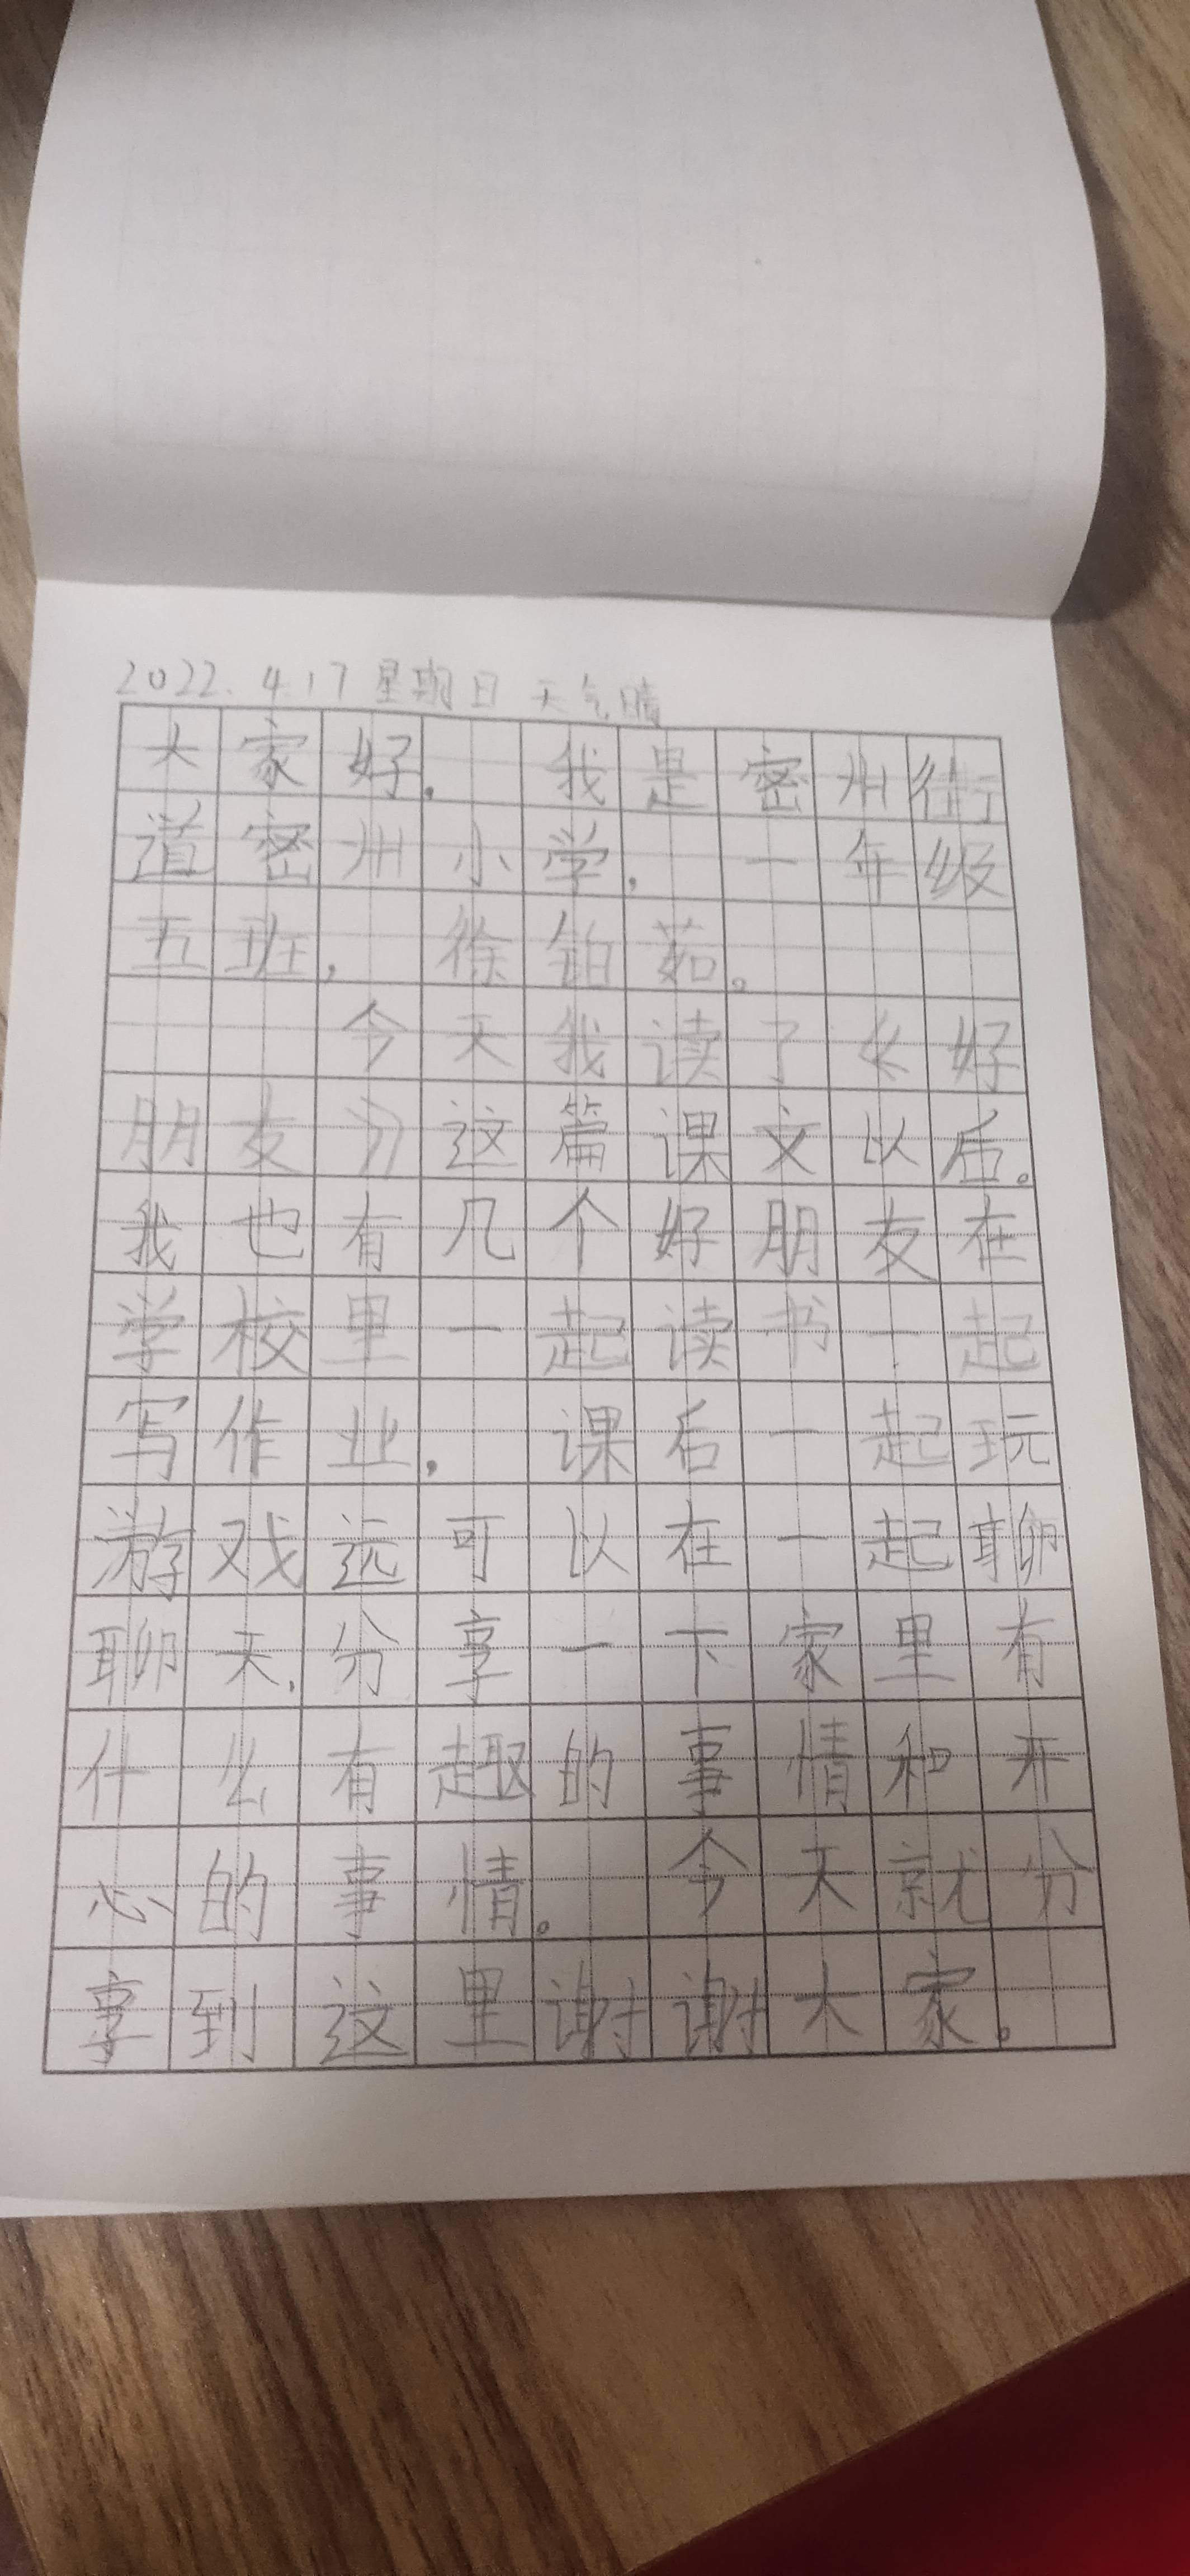 2022.4.17 星期日 天气晴
大家好，我是密州街
道密州小学，一年级
五班，徐铂茹。
今天我读了《好
朋友》这篇课文以后。
我也有几个好朋友在
学校里一起读书一起
写作业，课后一起玩
游戏远可以在一起聊
聊天，分享一下家里有
什么有趣的事情和开
心的事情。今天就分
享到这里谢谢大家。